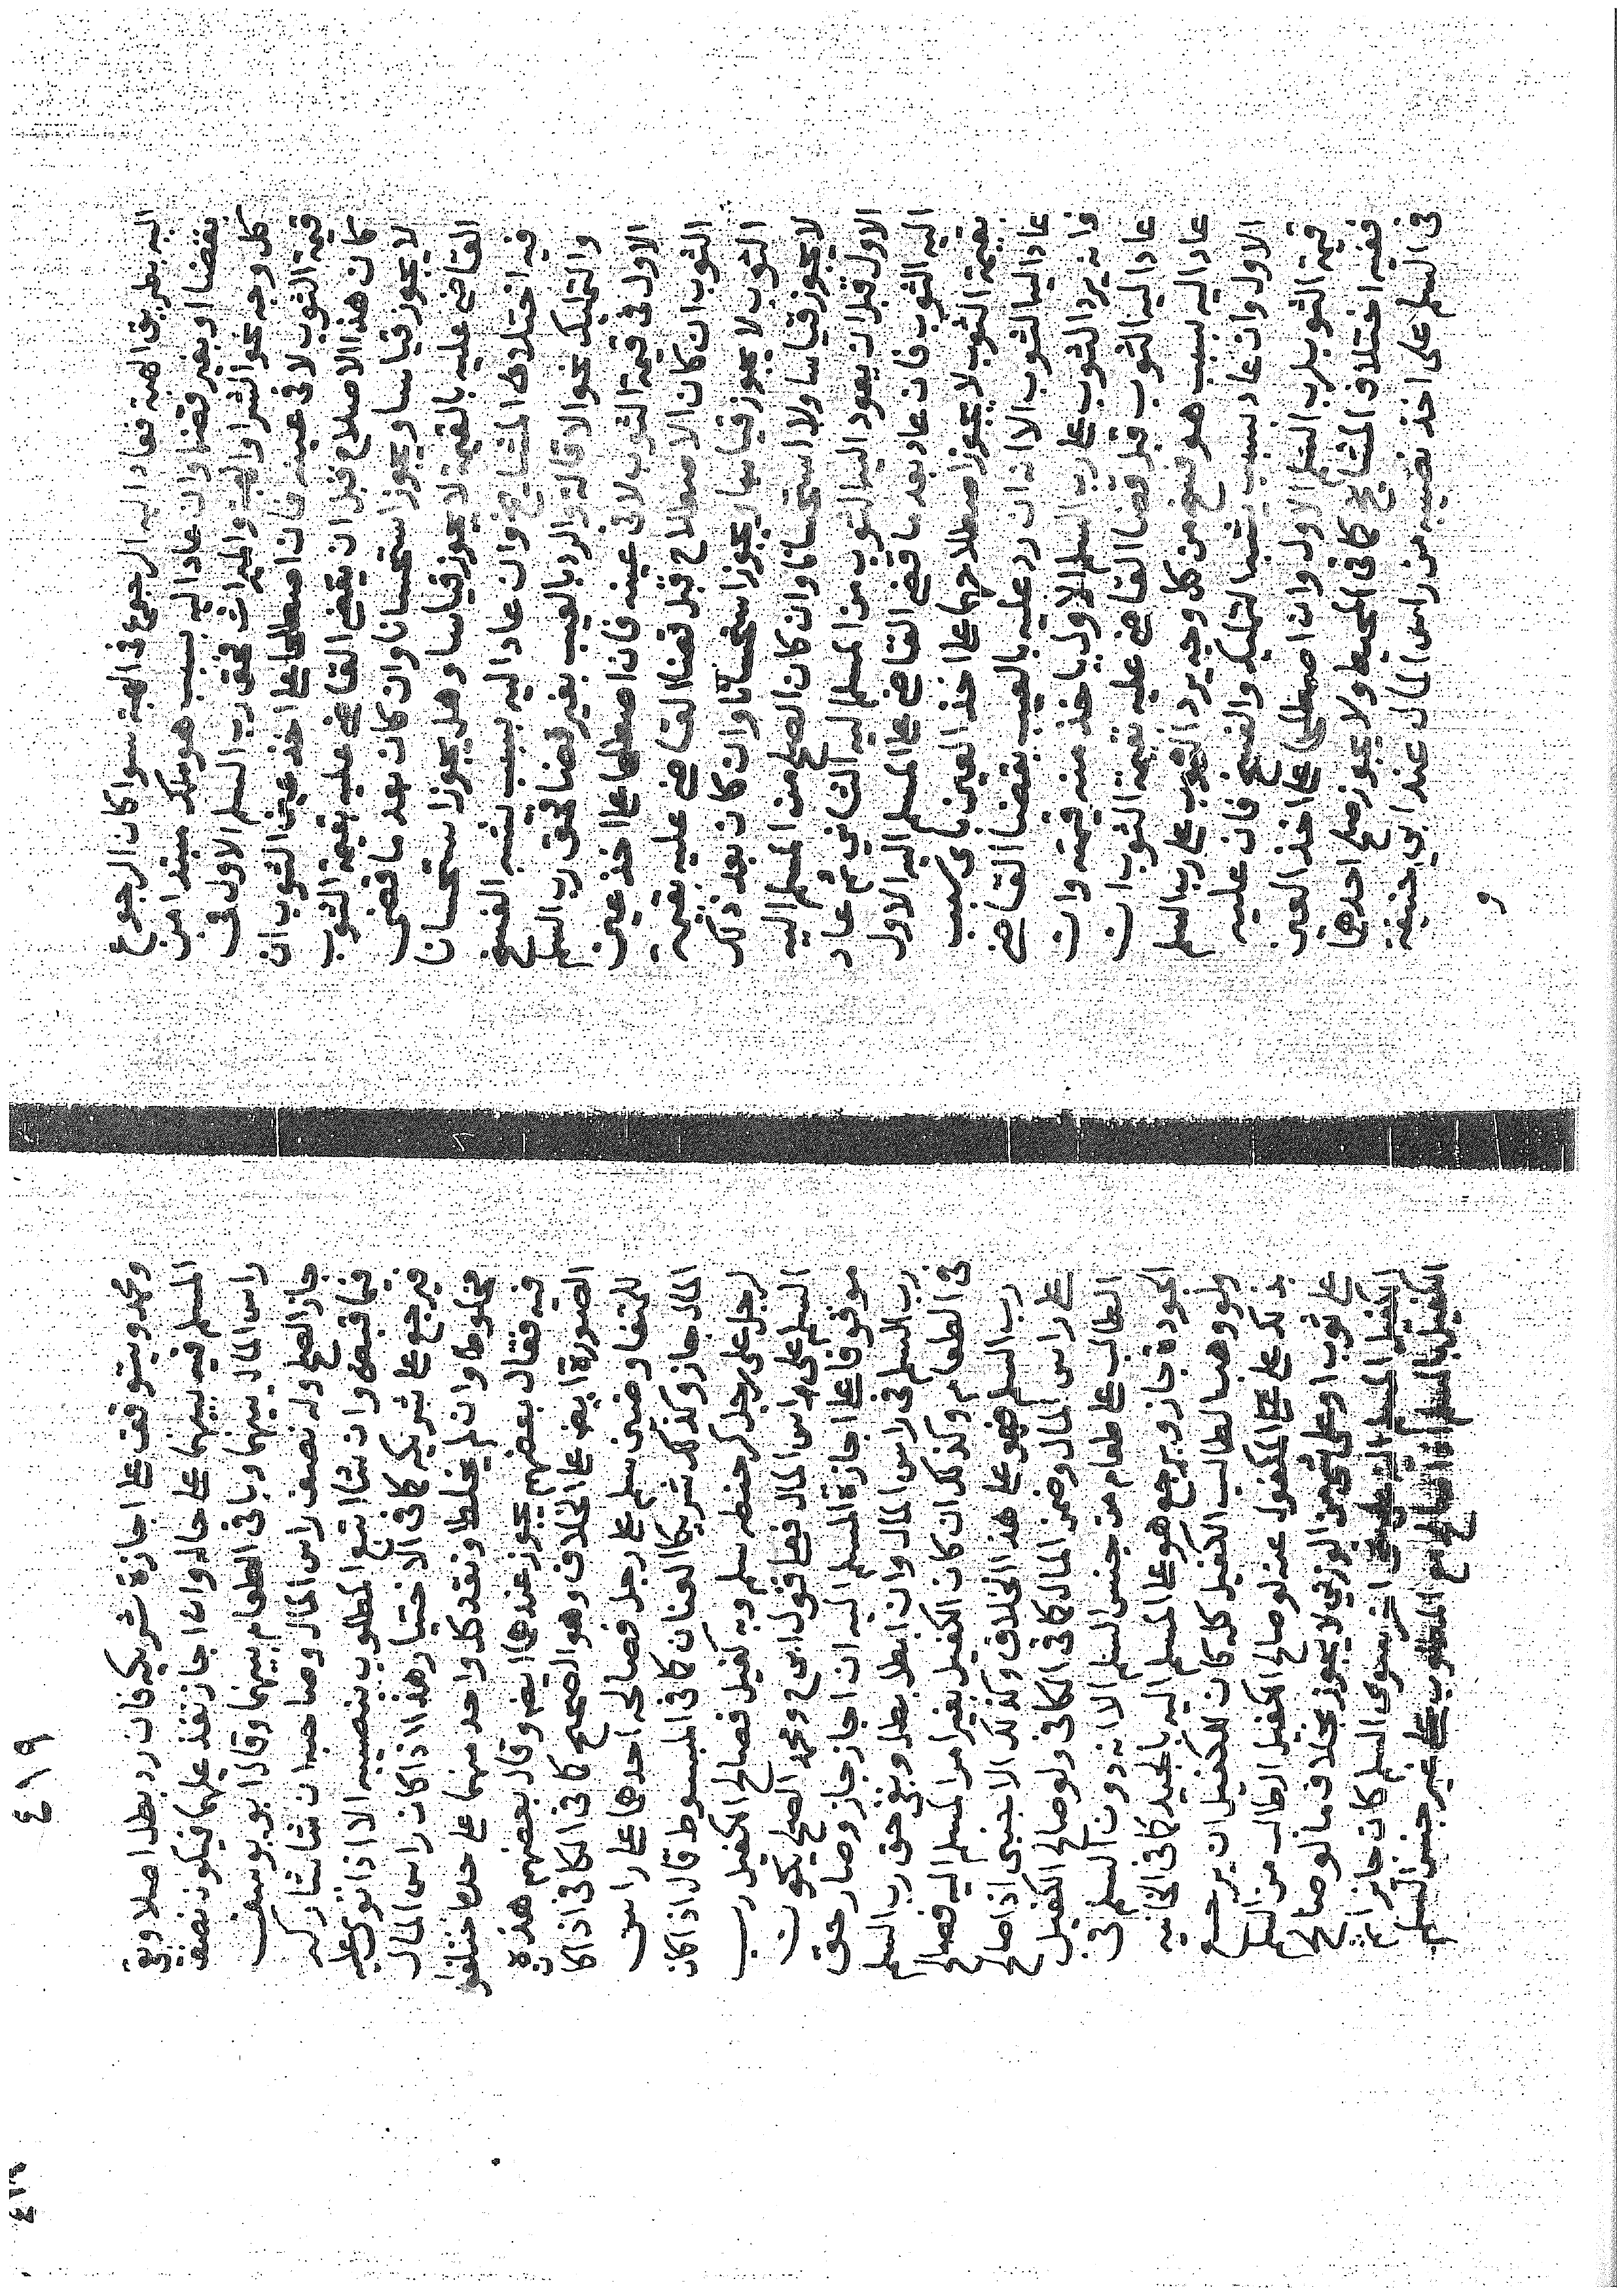 اليه بطريق الهبة فعاد اليه الرجوع في الهبة سوا كان الرجوع
بقضا او بغير قضا وان عاد اليه بسبب هو ملك مبتدا من
كل وجه نحو الشرا والهبة والميراث فحق رب السلم الاول في
قيمة الثوب لا في عينه فان اصطلحا على اخذ عين الثوب ان
كان هذا الاصلاح قبل ان يقضي القاضي عليه بقيمة الثوب
لا يجوز قياسا ويجوز استحسانا وان كان بعد ما قضى
القاضي عليه بالقيمة لا يجوز قياسا وهل يجوز استحسانا
فيه اختلاف المشايخ وان عاد اليه بسبب يشبه الفسخ
والتمليك نحو الاقالة والرد بالعيب بغير قضا فحق رب السلم
الاول في قيمة الثوب لا في عينه فان اصطلحا على اخذ عين
الثوب ان كان الاصطلاح قبل قضا القاضي عليه بقيمة
الثوب لا يجوز قياسا ويجوز استحسانا وان كان بعد ذلك
لا يجوز قياسا ولا استحسانا وان كان الصلح من المسلم اليه
الاول قبل ان يعود اليه الثوب من المسلم اليه الثاني ثم عاد
اليه الثوب فان عاد بعد ما قضى القاضي على المسلم اليه الاول
بقيمة الثوب لا يجوز اصطلاحهما على اخذ العين باي سبب
عاد اليه الثوب الا انه ان رد عليه بالعيب بقضا القاضي
فانه يرد الثوب على رب السلم الاول ياخذ منه قيمته وان
عاد اليه الثوب قبل قضا القاضي عليه بقيمة الثوب ان
عاد اليه بسبب هو فسخ من كل وجه يرد الثوب على رب السلم
الاول وان عاد بسبب يشبه التمليك والفسخ فان عليه
قيمة الثوب لرب السلم الاول وان اصطلحا على اخذ العين
ففيه اختلاف المشايخ كما في المحيط ولا يجوز صلح احدهما
في السلم على اخذ نصيبه من راس المال عند ابي حنيفة
و
ومحمد ويتوقف على اجازة شريكه فان رد بطل اصلا وبقي
المسلم فيه بينهما على حاله وان اجاز نفذ عليهما فيكون نصف
راس المال بينهما وباقي الطعام بينهما وقال ابو يوسف
جاز الصلح وله نصف راس المال وصاحبه ان شا شاركه
فيما قبض وان شا اتبع المطلوب بنصيبه الا اذا توى عليه
فيرجع على شريكه كما في الاختيار هذا اذا كان راس المال
مخلوطا وان لم يخلط ونقد كل واحد منهما على حدة اختلفوا
فيه فقال بعضهم يجوز عندهما ايضا وقال بعضهم هذه
الصورة ايضا على الخلاف وهو الصحيح كما في الكافي اذا كان
للمتفاوضين سلم على رجل فصالحه احدهما على راس
المال جاز وكذلك شريكا العنان كما في المبسوط قال اذا كان
لرجل على رجل كر حنطة سلم وبه كفيل فصالح الكفيل رب
السلم على راس المال فعلى قول ابي ح ومحمد الصلح يكون
موقوفا على اجازة المسلم اليه ان اجاز جاز وصار حق
رب السلم في راس المال وان ابطل بطل وبقي حق رب السلم
في الطعام وكذلك ان كان الكفيل بغير امر المسلم اليه فصالح
رب السلم فهو على هذا الخلاف وكذلك الاجنبي اذا صالح
على راس المال وضمن المال كما في الكافي ولو صالح الكفيل
الطالب على طعام من جنس السلم الا انه دون السلم في
الجودة جاز ويرجع هو على المسلم اليه بالجيد كما في الخانيه
ولو وهب الطالب الكفيل كله كان للكفيل ان يرجع
بذلك على المكفول عنه لو صالح الكفيل الطالب من السلم
على ثوب او على شي من الوزني لا يجوز بخلاف ما لو صالح
الكفيل المسلم اليه على شي اخر سوى السلم كان جائزا